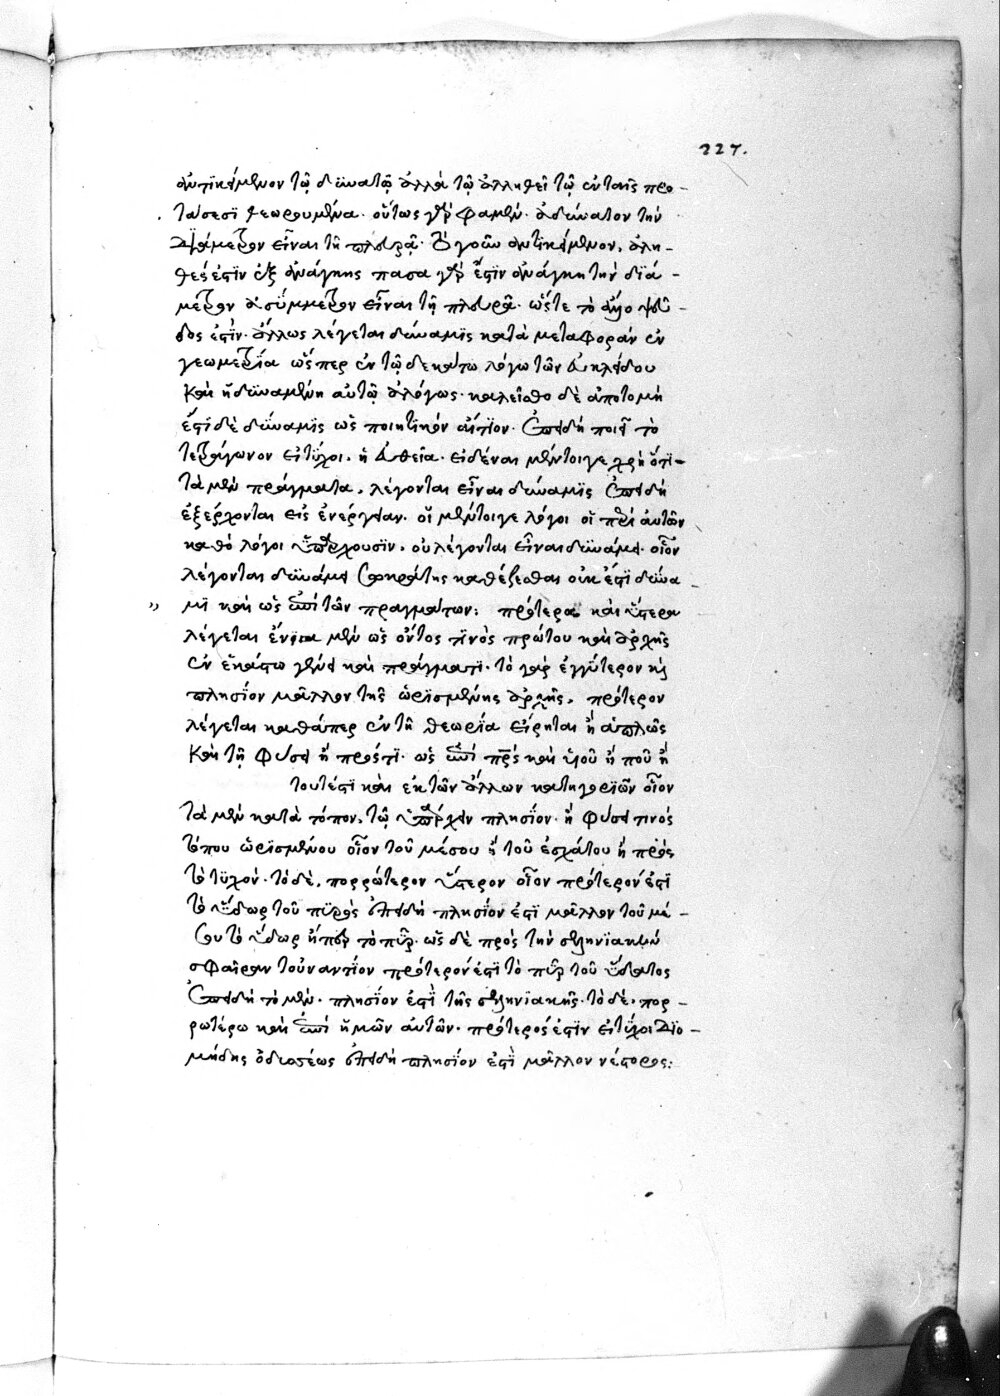 227.
ἀντικείμενον τῷ δυνατῷ ἀλλὰ τῷ ἀληθεῖ τῷ ἐν ταῖς προ-
τάσεσι θεωρουμένω. οὕτως γάρ φαμεν. ἀδύνατον τὴν
διάμετρον εἶναι τῇ πλευρᾷ. τὸ γοῦν ἀντικείμενον, ἀλη-
θές ἐστιν ἐξ ἀνάγκης πᾶσα γάρ ἐστιν ἀνάγκη τὴν διά-
μετρον ἀσύμμετρον εἶναι τῇ πλευρᾷ. ὥστε τὸ ψεῦ-
δος ἐστίν. ἄλλως λέγεται δύναμις κατὰ μεταφορὰν ἐν
γεωμετρία ὥσπερ ἐν τῷ δεκάτω λόγω τῶν Εὐκλείδου
καὶ ἡ δυναμένη αὐτῷ ἀλόγως. καλείσθω δὲ ἀποτομή
ἔστι δὲ δύναμις ὡς ποιητικὸν αἴτιον. ἐπειδὴ ποιεῖ τὸ
τετράγωνον εἰ τύχοι. ἡ εὐθεῖα. εἰδέναι μέντοιγε χρὴ ὅτι-
τὰ μὲν πράγματα, λέγονται εἶναι δύναμις ἐπειδὴ
ἐξέρχονται εἰς ἐνέργειαν. οἵ μέντοιγε λόγοι οἱ περὶ αὐτῶν
καθὸ λόγοι ὑπάρχουσιν. οὐ λέγονται εἶναι δυνάμει. οἷον
λέγονται δυνάμει Σωκράτης καθέζεσθαι οὐκ ἔστι δυνά-
μι καὶ ὡς ἐπὶ τῶν πραγμάτων: πρότερα καὶ ὕστερα
λέγεται ἔνια μὲν ὡς ὄντος τινὸς πρώτου καὶ ἀρχῆς
ἐν ἑκάστω γένει καὶ πράγματι. τὸ γὰρ ἐγγύτερον καὶ
πλησίον μᾶλλον τῆς ὡρισμένης ἀρχῆς, πρότερον
λέγεται καθάπερ ἐν τῇ θεωρία εἴρηται ἢ ἁπλῶς
καὶ τῇ φύσει ἢ πρός τι. ὡς ἐπὶ πρὸς καὶ ἢ ποῦ ἢ
τουτέστι καὶ ἐκ τῶν ἄλλων κατηγοριῶν οἷον
τὰ μὲν κατὰ τόπον, τῷ ὑπάρχειν πλησίον. ἢ φύσει τινός
τόπου ὡρισμένου οἷον τοῦ μέσου ἢ τοῦ ἐσχάτου ἢ πρὸς
τὸ τυχόν. τὸ δὲ, πορρώτερον ὕστερον οἷον πρότερόν ἐστι
τὸ ὕδωρ τοῦ πυρὸς ἐπειδὴ πλησίον ἐστι μᾶλλον τοῦ μέ-
σου τὸ ὕδωρ ἤπερ τὸ πῦρ. ὡς δὲ πρὸς τὴν σεληνιακὴν
σφαῖραν τοὐναντίον πρότερόν ἐστι τὸ πῦρ τοῦ ὕδατος
ἐπειδὴ τὸ μὲν. πλησίον ἐστὶ τῆς σεληνιακῆς. τὸ δὲ. πορ-
ρωτέρω καὶ ἐπὶ ἡμῶν αὐτῶν. πρότερός ἐστιν εἰ τύχοι Διο-
μήδης ὀδυσσέως ἐπειδὴ πλησίον ἐστὶ μᾶλλον νέστορος: